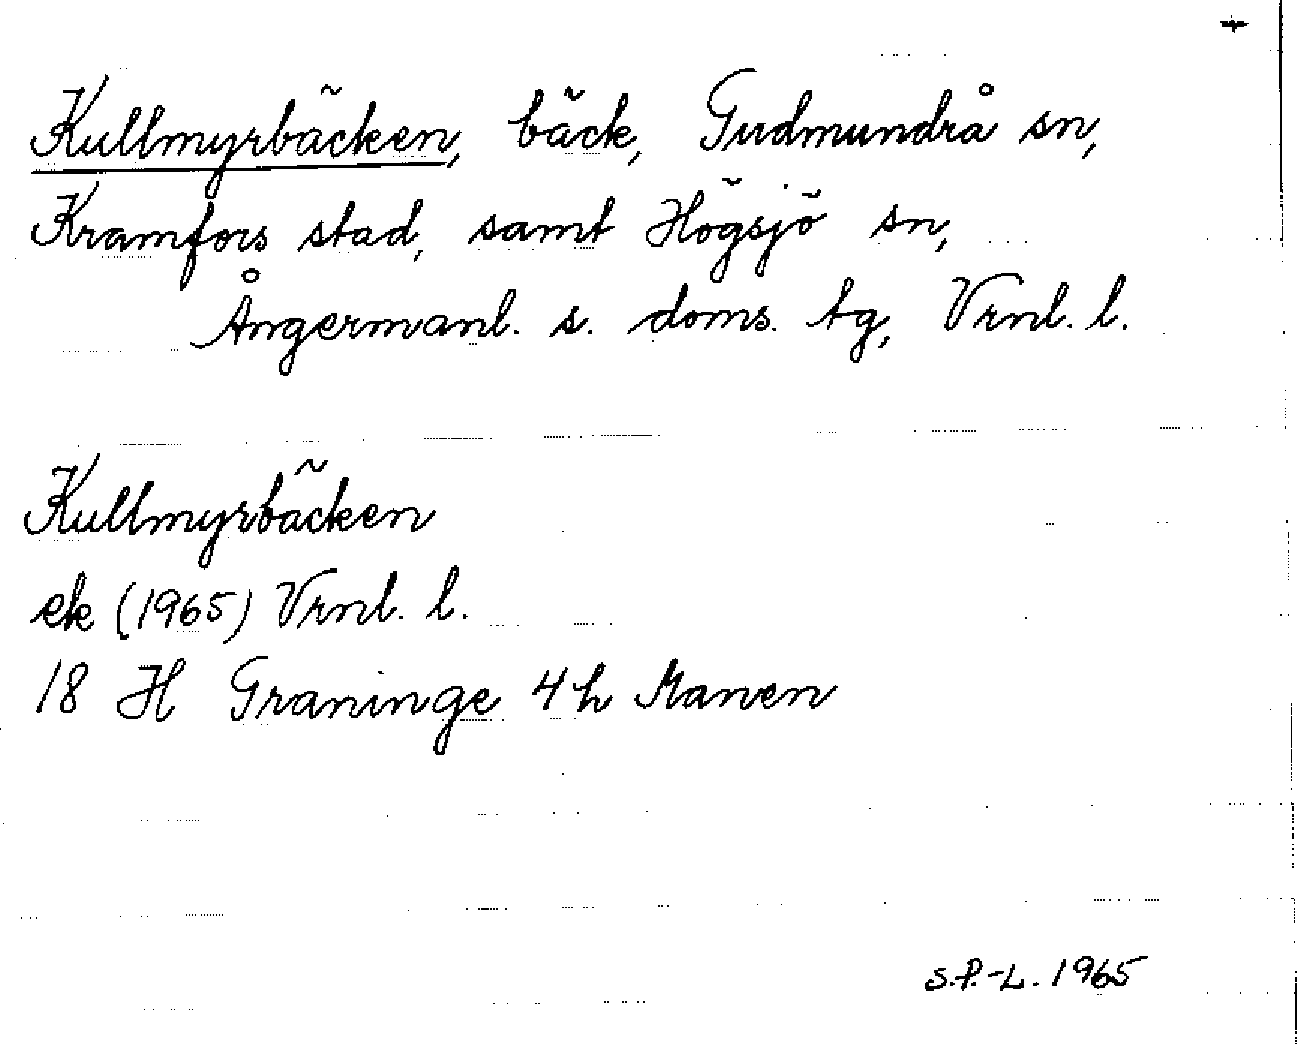 Kullmyrbäcken, bäck, Gudmundrå sn,
Kramfors stad, samt Högsjö sn,
Ångermanl. s. doms. tg, Vrnl. l.
Kullmyrbäcken
ek (1965) Vrnl. l.
18 H Graninge 4 h Manen
S.P.-L. 1965